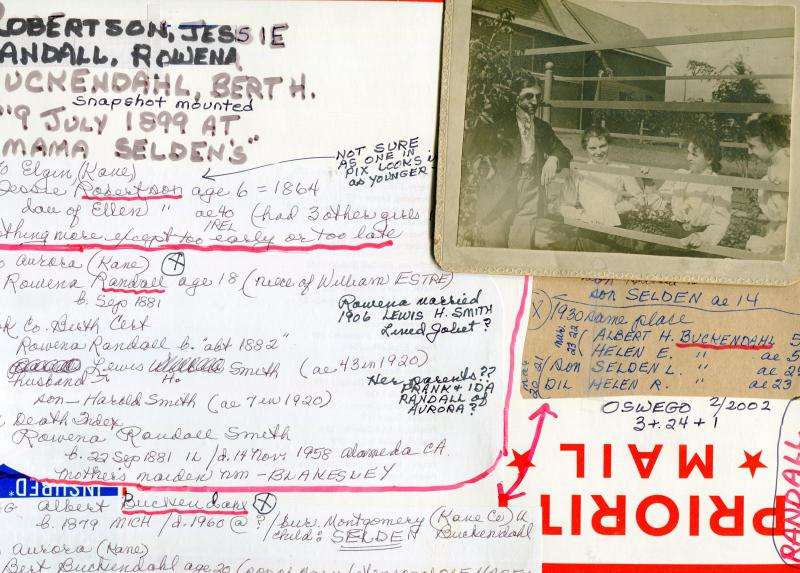 ROBERTSON, JESSIE
RANDALL, ROWENA
BUCKENDAHL, BERT H.
snapshot mounted
"9 JULY 1899 AT
MAMA SELDEN'S"
NOT SURE
AS ONE IN
PIX LOOKS
AS YOUNGER
Elgin (Kane)
Jessie Robertson age 6 = 1864
dau of Ellen " ae 40 (had 3 other girls
IREL
thing more except too early or too late
Aurora (Kane) X
Rowena Randall age 18 (niece of William ESTRE)
b. Sep 1881
Rowena married
1906 LEWIS H. SMITH
Lived Joliet?
Co. Birth Cert
Rowena Randall b. "abt 1882"
Lewis Smith (ae 43 in 1920)
husband H.
son - Harold Smith (ae 7 in 1920)
Her parents??
FRANK & IDA
RANDALL of
AURORA?
Death Index
Rowena Randall Smith
b. 22 Sep 1881 IL / d. 14 Nov 1958 Alameda CA.
mother's maiden nm - BLAKESLEY
INSURED
Albert Buckendahl X
b. 1879 MICH / d. 1960 @ ? / bur. Montgomery (Kane Co) IL
child: SELDEN Buckendahl
Aurora (Kane)
Bert Buckendahl age 20
son SELDEN ae 14
X 1930 same place
ALBERT H. BUCKENDAHL 5
HELEN E. " ae 5
SON SELDEN L. " ae 2
DIL HELEN R. " ae 23
OSWEGO 2/2002
3+.24+1
PRIORIT
MAIL
RANDALL